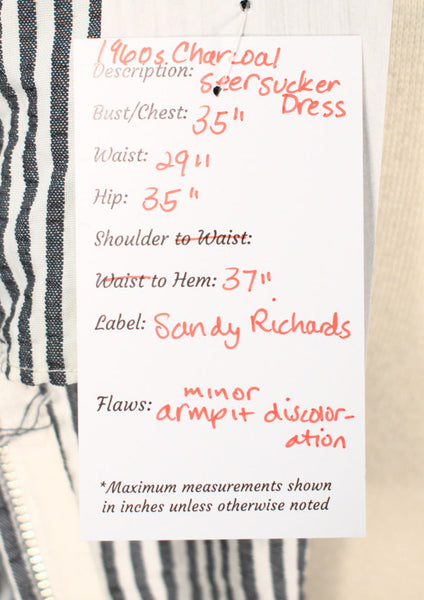 1960s Charcoal
Description: Seersucker
Dress
Bust/Chest: 35"
Waist: 29"
Hip: 35"
Shoulder to Waist:
Waist to Hem: 37"
Label: Sandy Richards
minor
Flaws: armpit discolor-
ation
*Maximum measurements shown
in inches unless otherwise noted